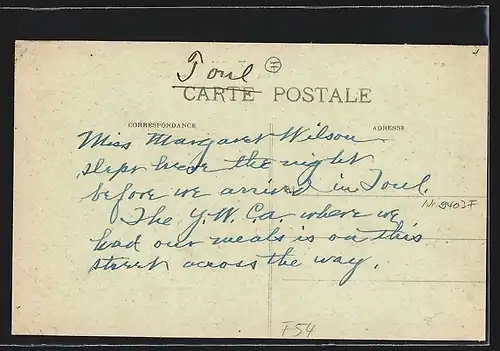 Toul
CARTE POSTALE
CORRESPONDANCE
ADRESSE
Miss Margaret Wilson
slept here the night
before we arrived in Toul.
Nr. 9403F
The Y.W.Ca. where we
had our meals is on this
street across the way.
F54